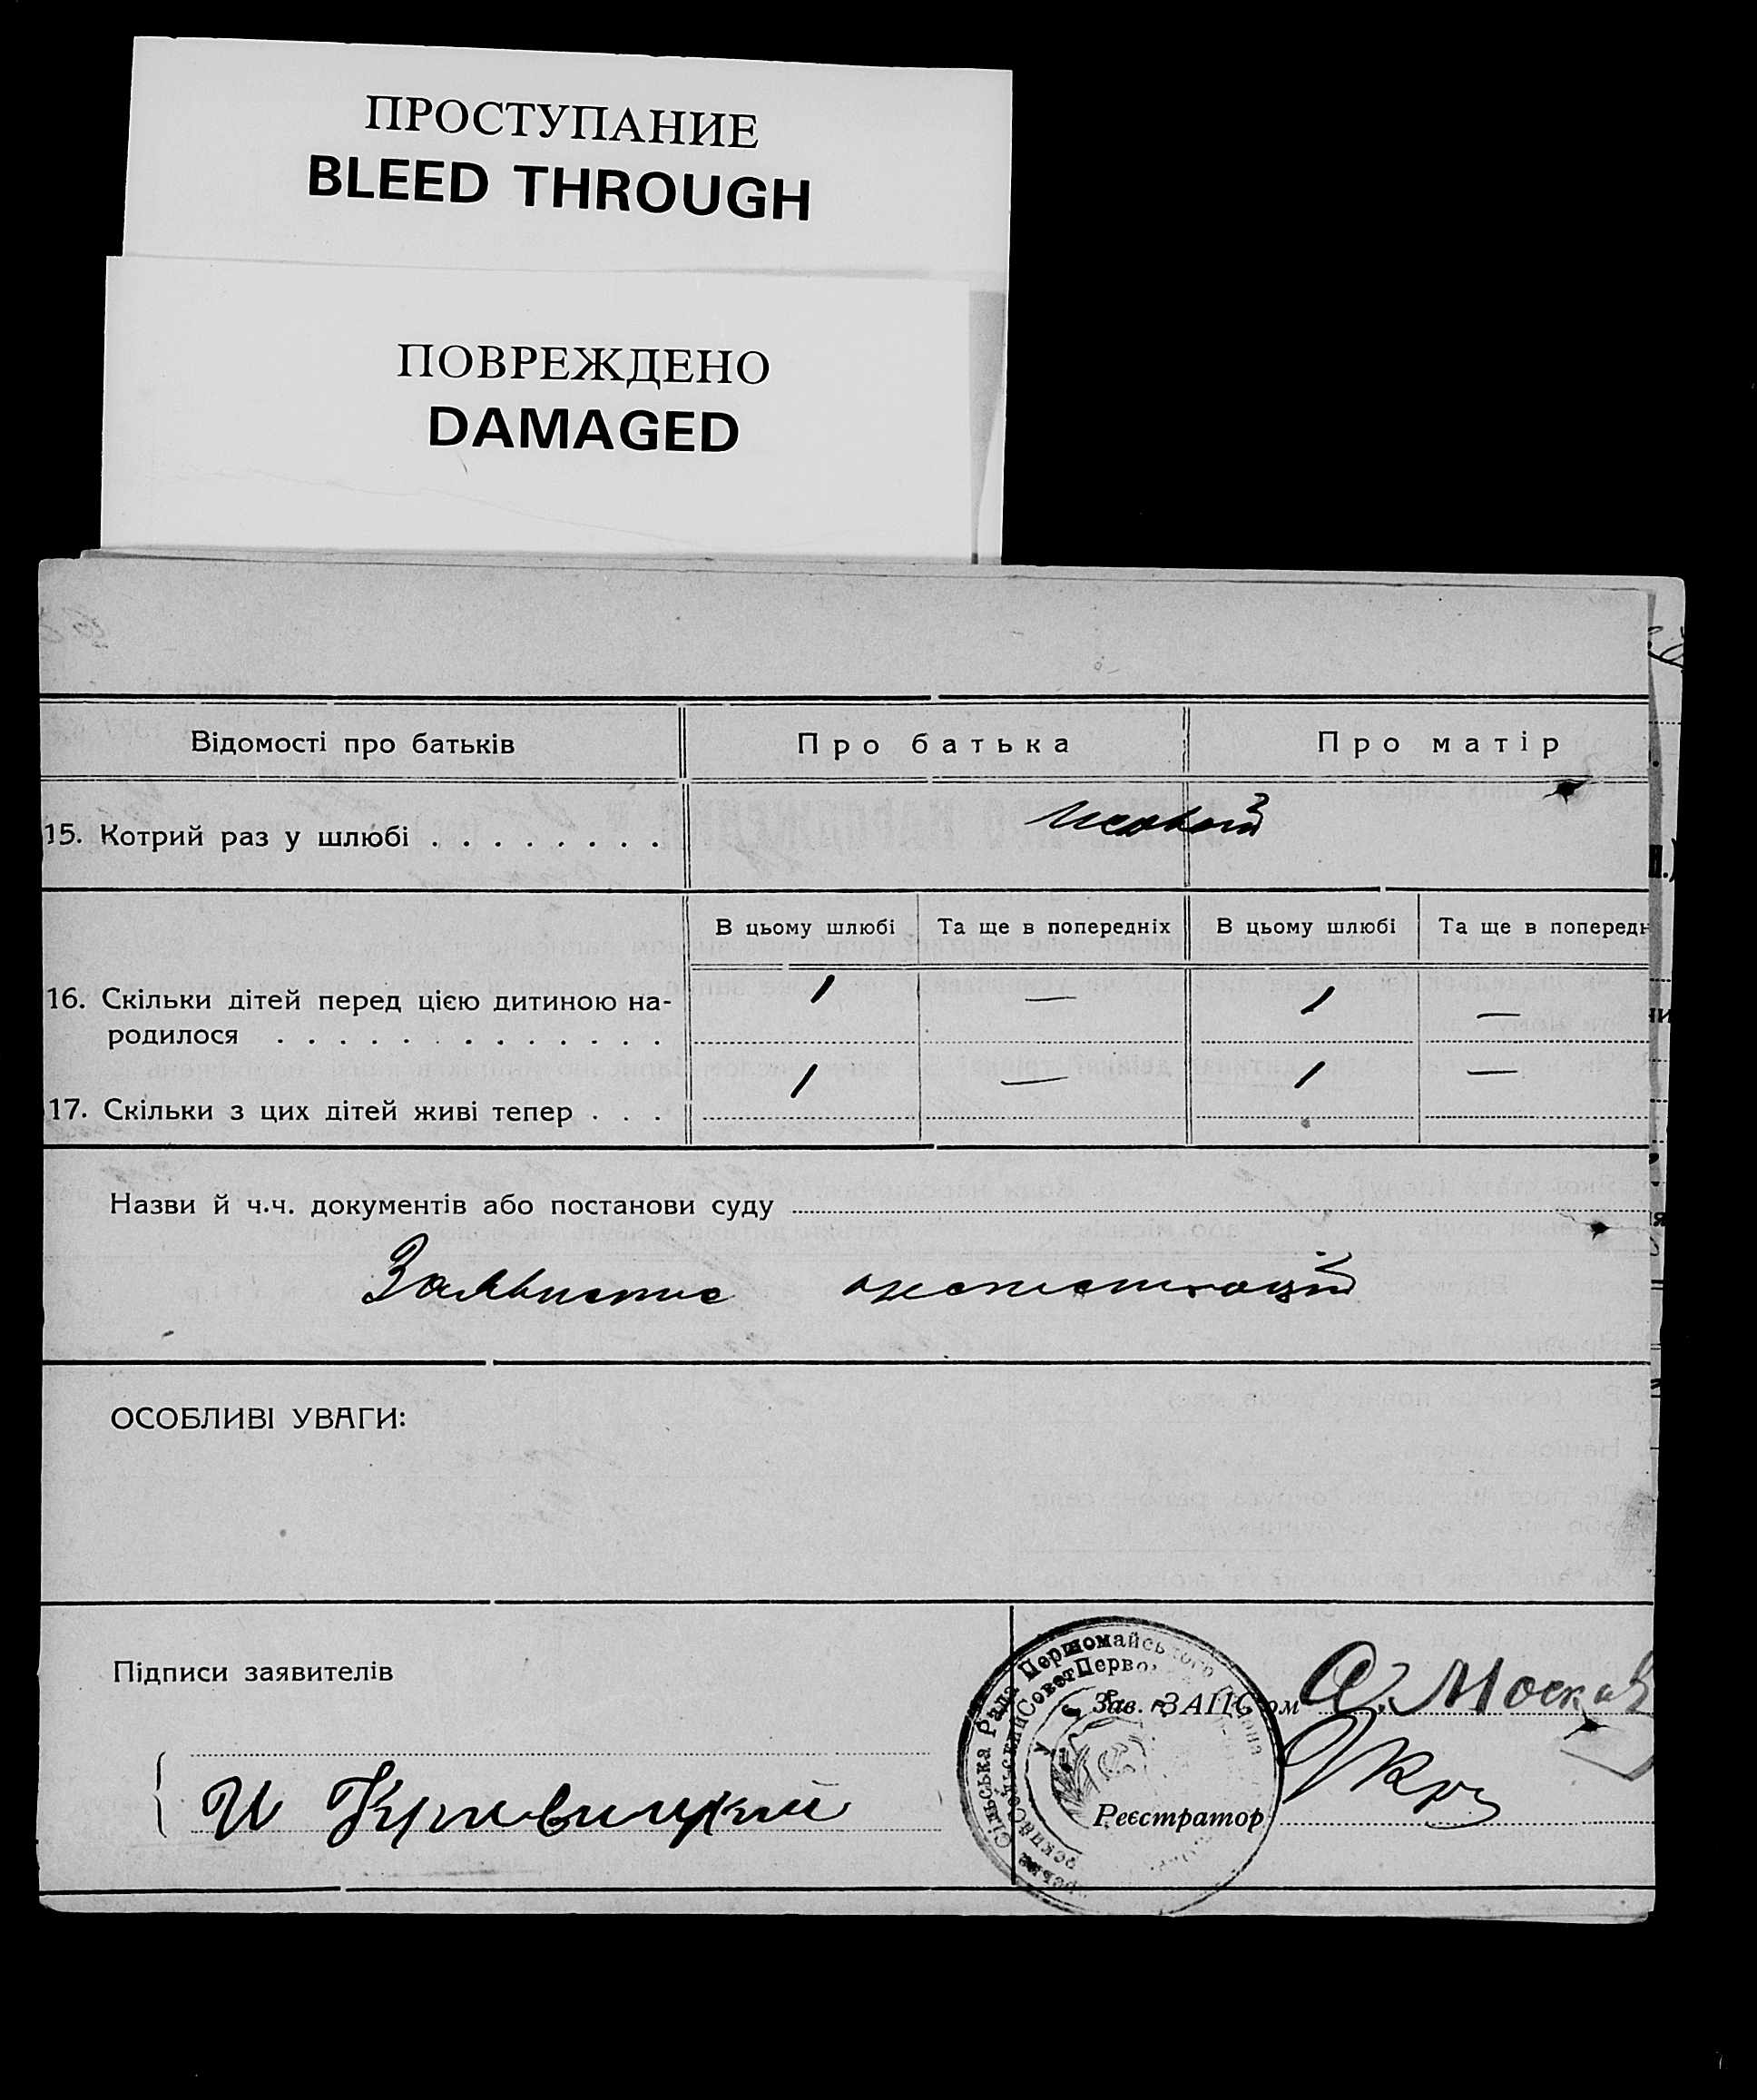 ПРОСТУПАНИЕ
BLEED THROUGH
ПОВРЕЖДЕНО
DAMAGED
Відомості про батьків
Про батька
Про матір
15. Котрий раз у шлюбі . . . . . . . .
В цьому шлюбі
Та ще в попередніх
В цьому шлюбі
Та ще в попередн
16. Скільки дітей перед цією дитиною на-
родилося . . . . . . . . . . . . .
1 — 1 —
17. Скільки з цих дітей живі тепер . . .
1 — 1 —
Назви й ч.ч. документів або постанови суду
ОСОБЛИВІ УВАГИ:
Підписи заявителів
И Кривицкий
Зав. ЗАГС'ом
Реєстратор
Сільська Рада Першомайського